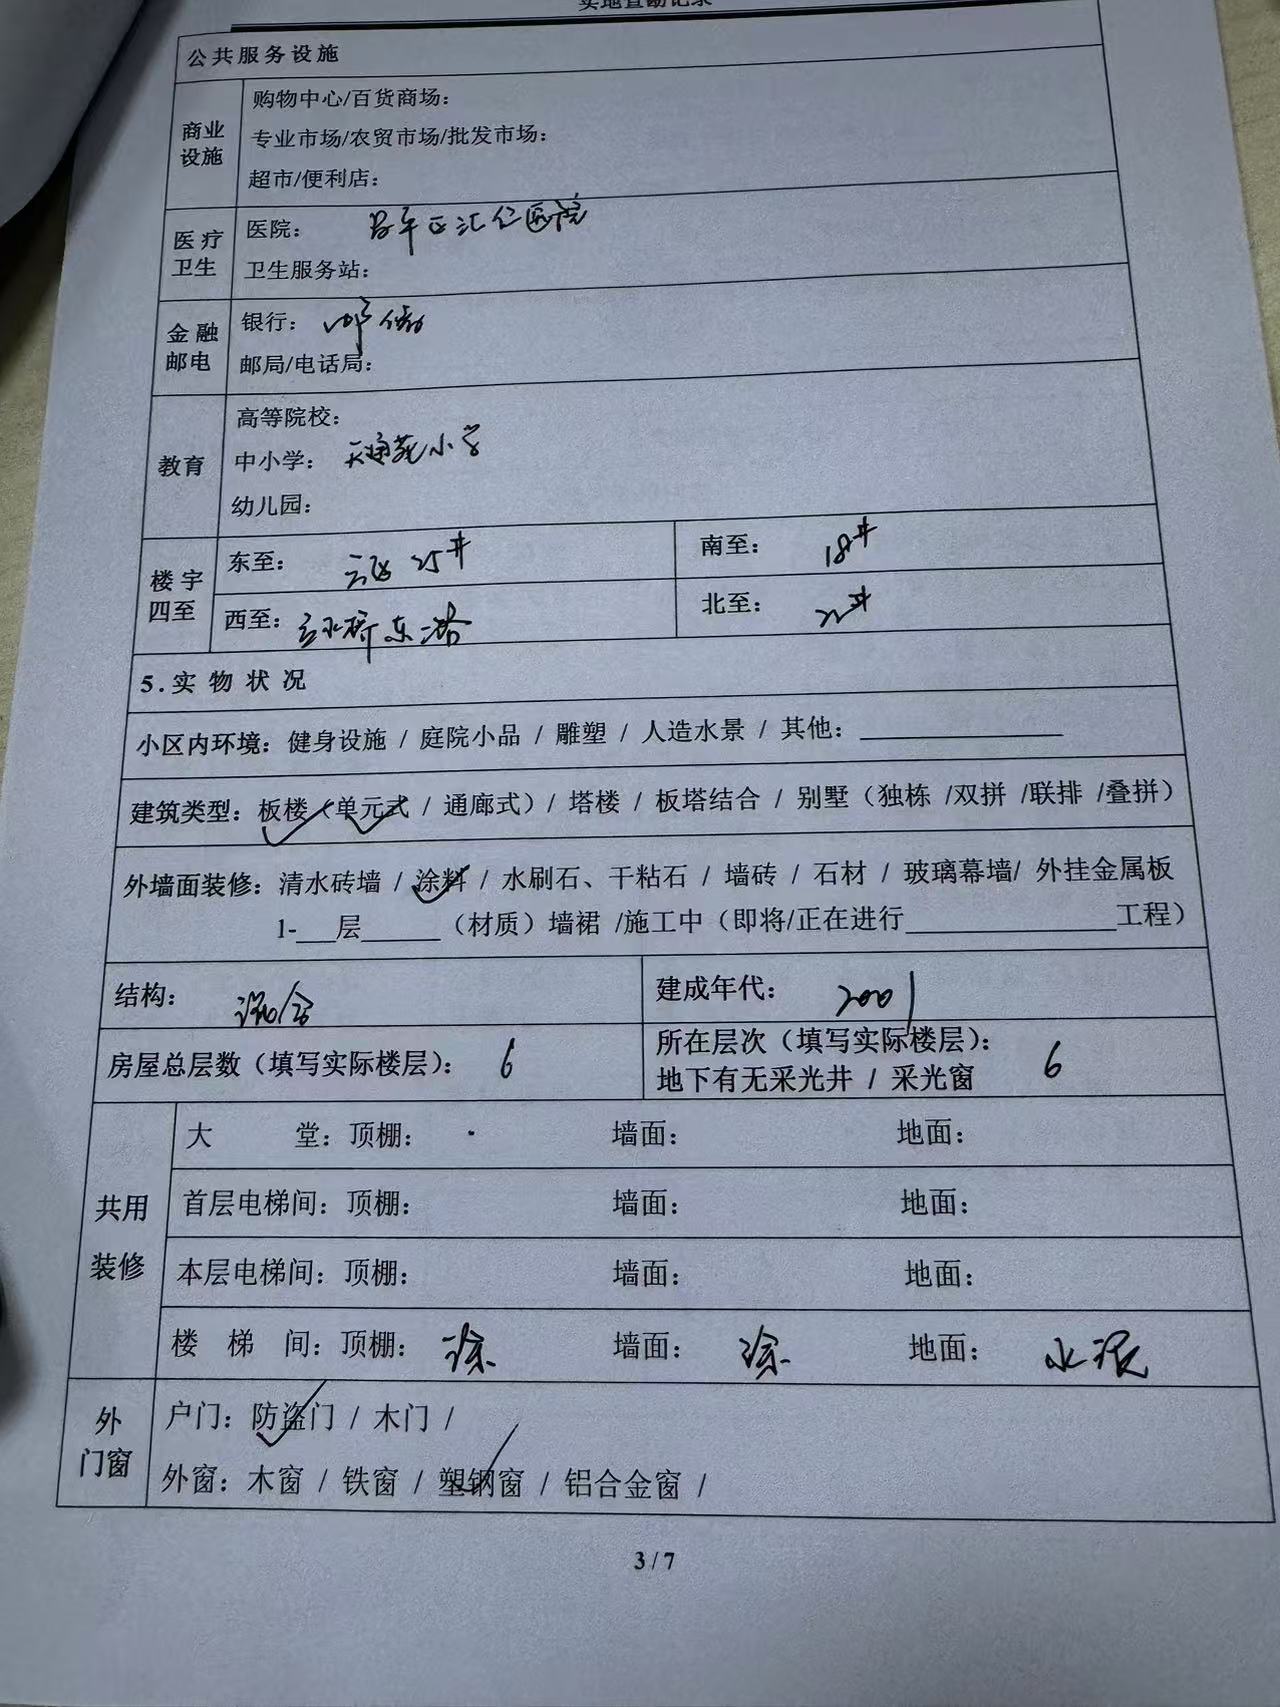 实地查勘记录
公共服务设施
商业设施
购物中心/百货商场:
专业市场/农贸市场/批发市场:
超市/便利店:
医疗卫生
医院: 昌平区汇仁医院
卫生服务站:
金融邮电
银行: 邮储
邮局/电话局:
教育
高等院校:
中小学: 天通苑小学
幼儿园:
楼宇四至
东至: 25#
南至: 18#
西至: 立水桥东路
北至: 22#
5.实物状况
小区内环境: 健身设施 / 庭院小品 / 雕塑 / 人造水景 / 其他: ________
建筑类型: 板楼（单元式 / 通廊式）/ 塔楼 / 板塔结合 / 别墅（独栋 /双拼 /联排 /叠拼）
外墙面装修: 清水砖墙 / 涂料 / 水刷石、干粘石 / 墙砖 / 石材 / 玻璃幕墙/ 外挂金属板
1-___层______（材质）墙裙 /施工中（即将/正在进行________________工程）
结构: 混合
建成年代: 2001
房屋总层数（填写实际楼层）: 6
所在层次（填写实际楼层）: 6
地下有无采光井 / 采光窗
共用装修
大堂: 顶棚: 墙面: 地面:
首层电梯间: 顶棚: 墙面: 地面:
本层电梯间: 顶棚: 墙面: 地面:
楼梯间: 顶棚: 涂 墙面: 涂 地面: 水泥
外门窗
户门: 防盗门 / 木门 /
外窗: 木窗 / 铁窗 / 塑钢窗 / 铝合金窗 /
3 / 7